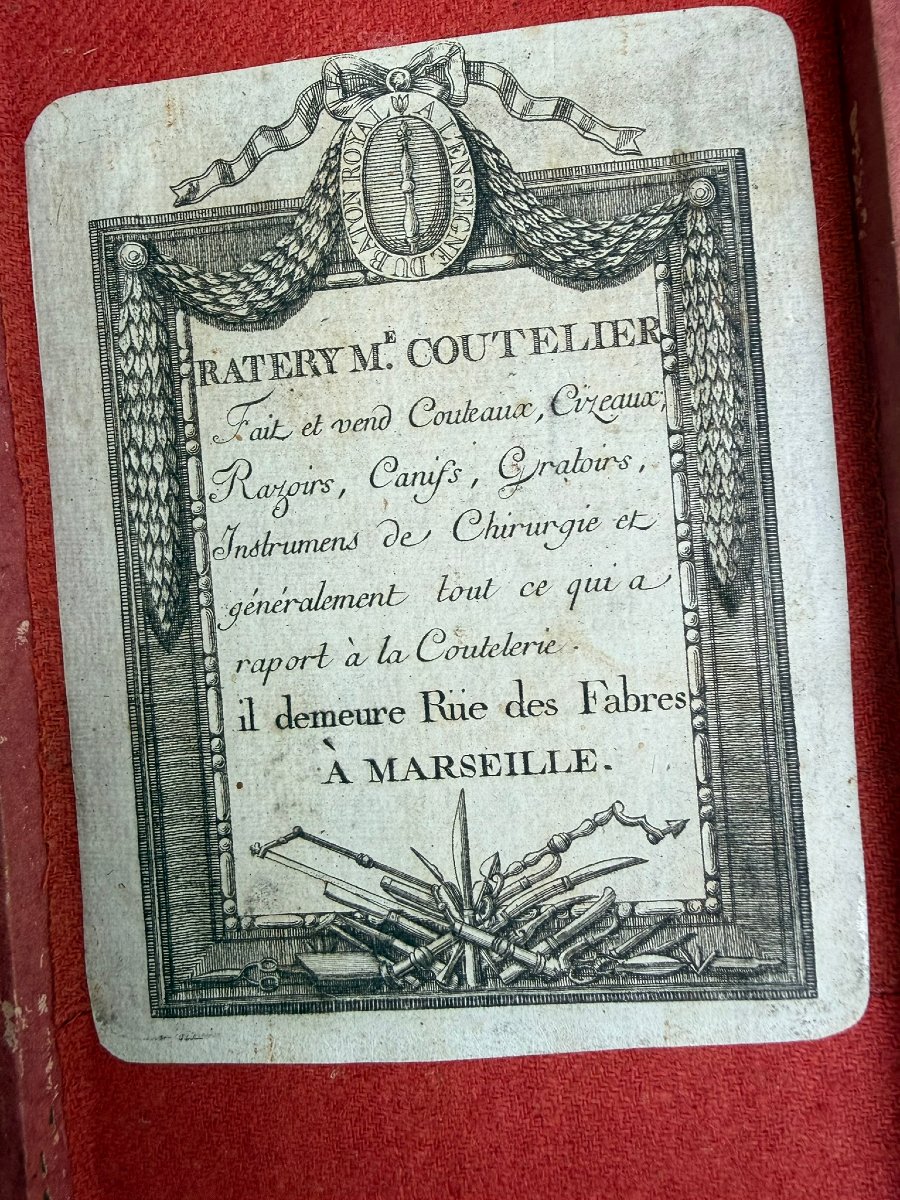 A LENSEIGNE DU BATON ROYAL
RATERY M.E COUTELIER
Fait et vend Couteaux, Cizeaux,
Razoirs, Canifs, Gratoirs,
Instrumens de Chirurgie et
généralement tout ce qui a
raport à la Coutelerie.
il demeure Rüe des Fabres
À MARSEILLE.